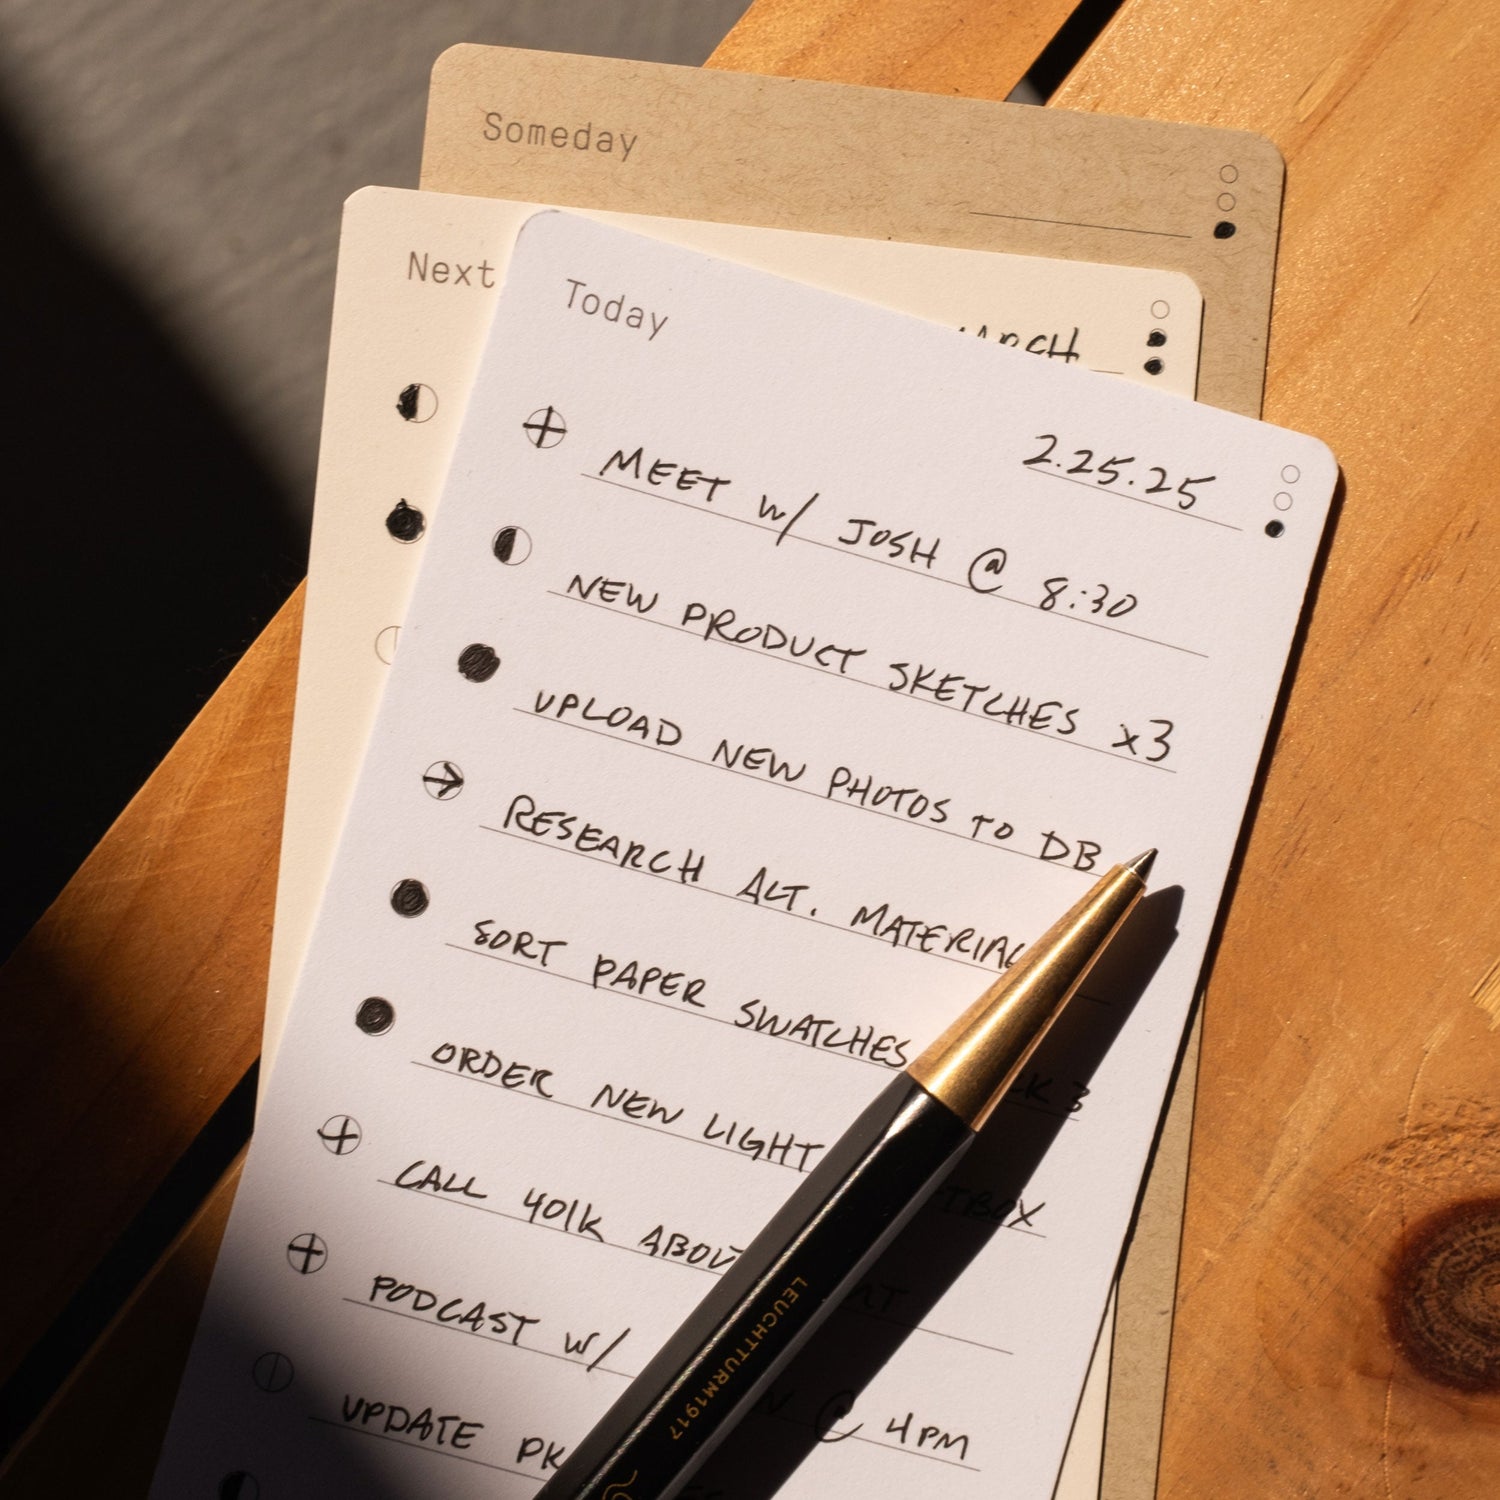 Someday
Next
Today
2.25.25
MEET w/ JOSH @ 8:30
NEW PRODUCT SKETCHES x3
UPLOAD NEW PHOTOS TO DB
RESEARCH ALT.
SORT PAPER SWATCHES
ORDER NEW LIGHTBOX
CALL 401K
PODCAST w/ @ 4PM
UPDATE
LEUCHTTURM1917